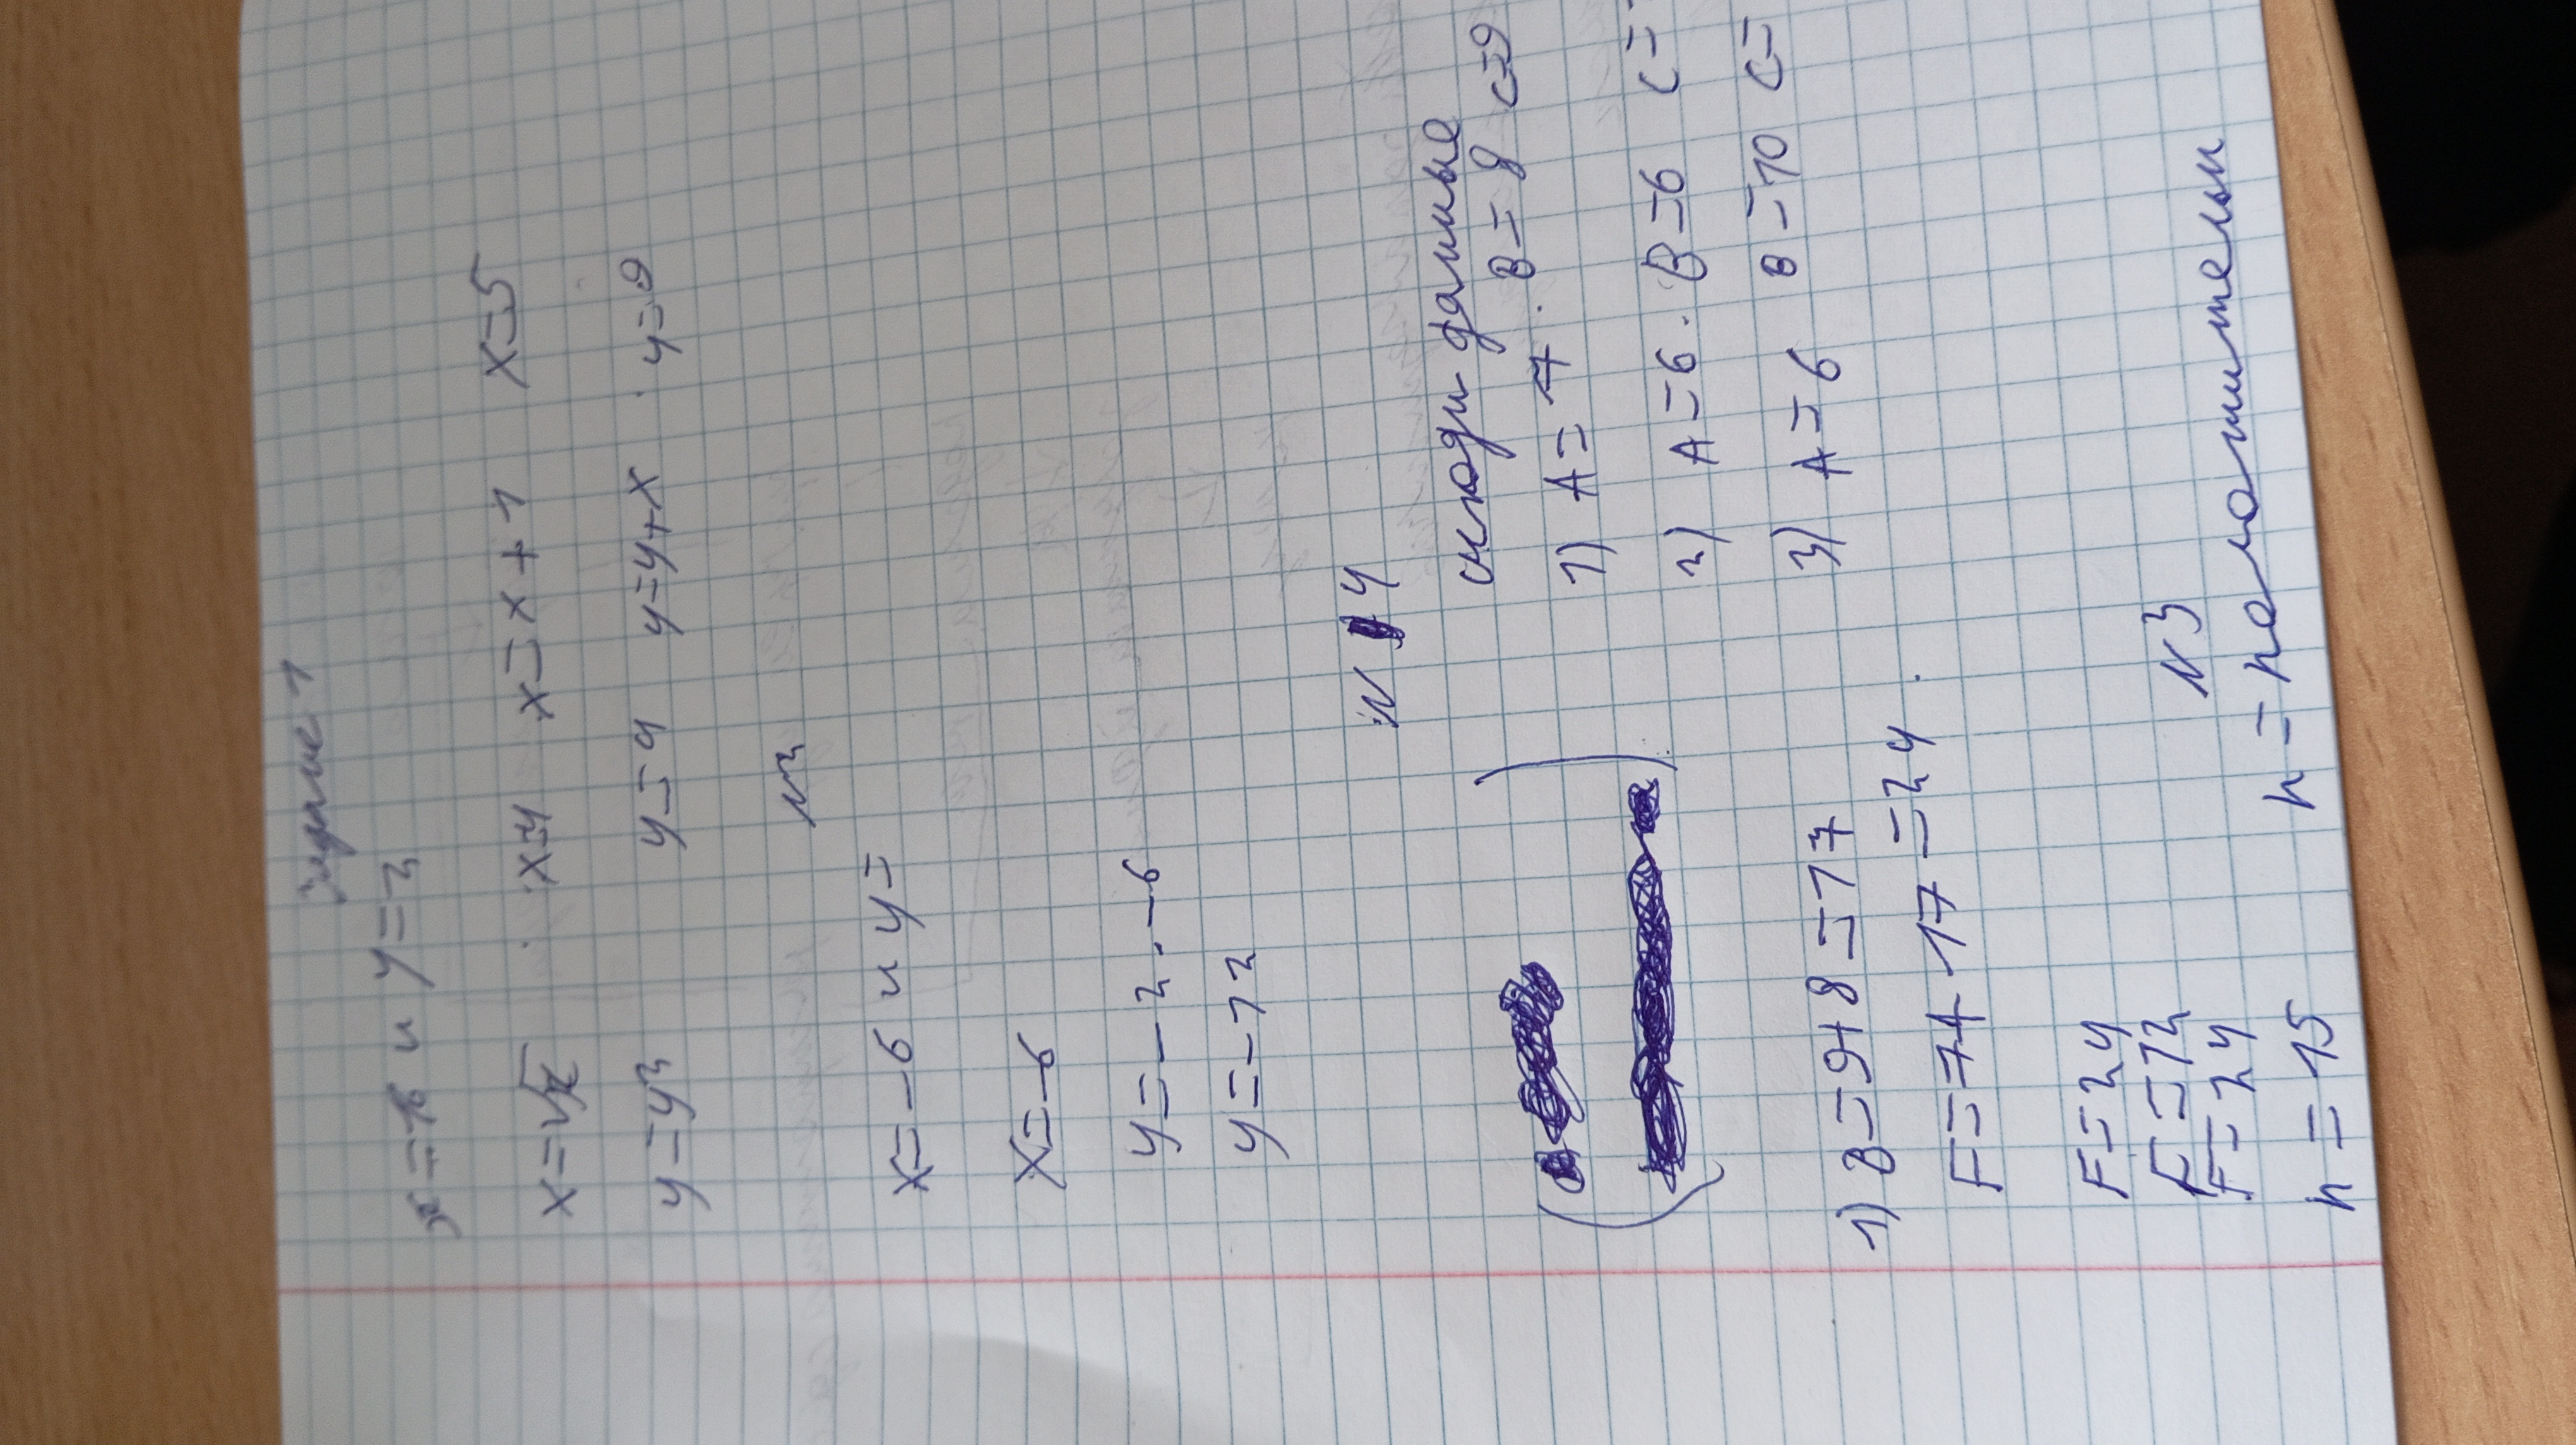 Задание 1
x=16 и y=2
x=√x x=4 x=x+1 x=5
y=y² y=4 y=y+x y=9
N2
x=-6 и y=
x=-6
y=-2·-6
y=-12
N 4
исходн данные
1) A=7 · B=8 C=9
2) A=6 · B=6 C=
3) A=6 B=10 C=
1) B=9+8=17
F=7+17=24
F=24
F=12
F=24
n=15
N3
n=положительн